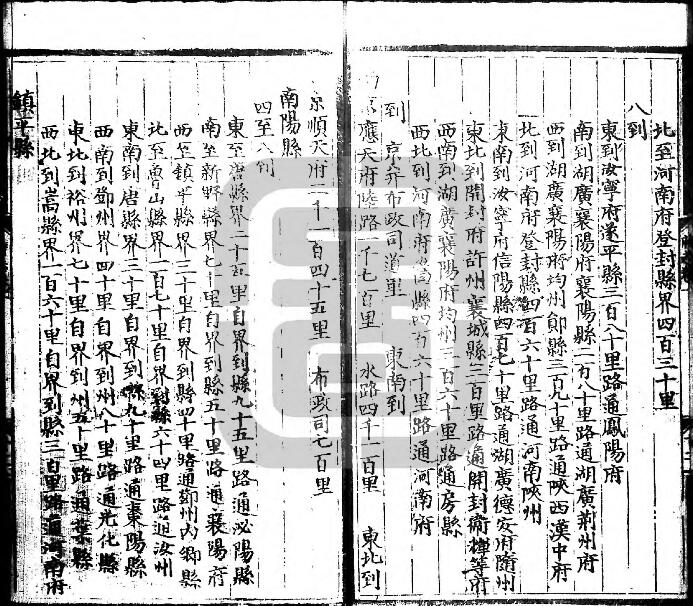 北至河南府登封縣界四百三十里
八到
東到汝寧府遂平縣三百八十里路通鳳陽府
南到湖廣襄陽府襄陽縣二百八十里路通湖廣荊州府
西到湖廣襄陽府均州鄖縣三百九十里路通陝西漢中府
北到河南府登封縣四百六十里路通河南陝州
東南到汝寧府信陽縣四百七十里路通湖廣德安府隨州
東北到開封府許州襄城縣三百里路通開封衞輝等府
西南到湖廣襄陽府均州三百六十里路通房縣
西北到河南府嵩縣四百六十里路通河南府
到 京并布政司道里 東南到
應天府陸路一千七百里 水路四千一百里 東北到
京順天府二千一百四十五里 布政司七百里
南陽縣
四至八到
東至唐縣界二十五里自界到縣九十五里路通泌陽縣
南至新野縣界七十里自界到縣五十里路通襄陽府
西至鎮平縣界三十里自界到縣四十里路通鄧州內鄉縣
北至魯山縣界一百七十里自界到縣六十里路通汝州
東南到唐縣界三十里自界到縣九十里路通棗陽縣
西南到鄧州界四十里自界到州八十里路通光化縣
東北到裕州界七十里自界到州五十里路通葉縣
西北到嵩縣界一百六十里自界到縣三百里路通河南府
鎮平縣